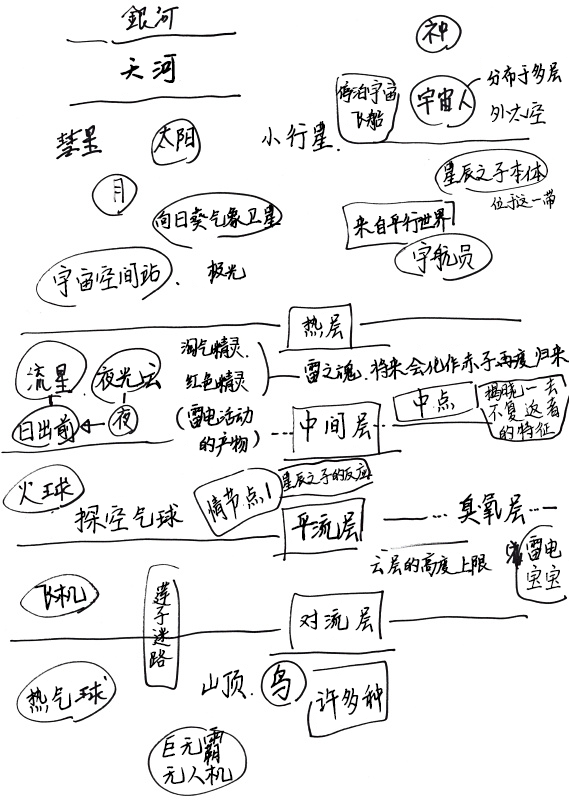 銀河
神
天河
停泊宇宙
飞船
宇宙人
分布于多层
外太空
彗星
太阳
小行星.
星辰之子本体
位于这一带
月
向日葵气象卫星
来自平行世界
宇航员
宇宙空间站、
极光
热层
淘气精灵.
红色精灵
雷之魂.将来会化作赤子再度归来
流星
夜光云
日出前
夜
(雷电活动
的产物)
中间层
中点
揭晓一去
不复返者
的特征
火球
探空气球
情节点1
星辰之子的反应
平流层
臭氧层
云层的高度上限
雷电
宝宝
飞机
莲子迷路
对流层
热气球
山顶.
鸟
许多种
巨无霸
无人机